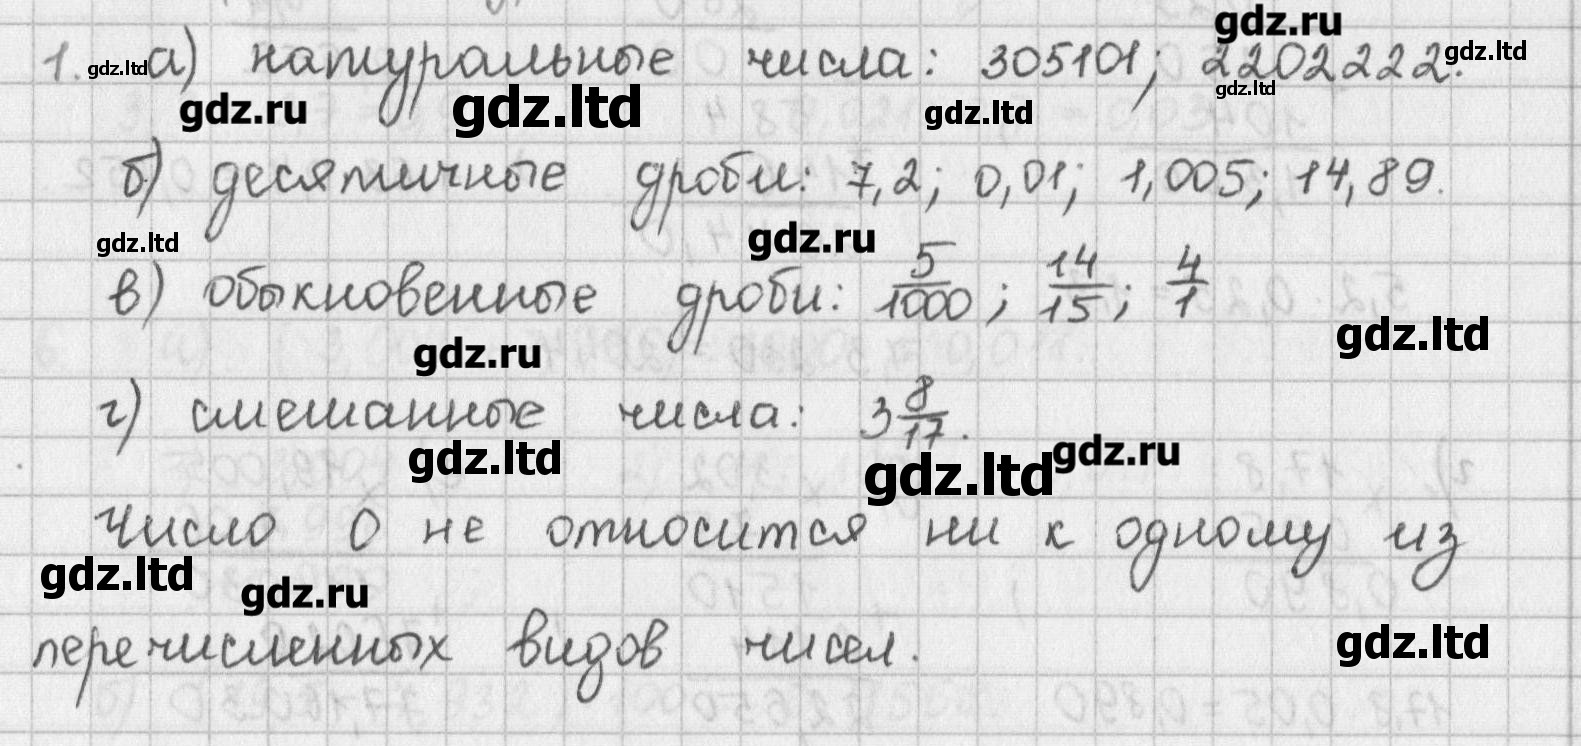 gdz.ru
1. gdz.ltd а) натуральные числа: 305101; 2202222. gdz.ltd
gdz.ru gdz.ltd gdz.ltd gdz.ltd
б) десятичные дроби: 7,2; 0,01; 1,005; 14,89.
gdz.ltd gdz.ru
в) обыкновенные дроби: 5/1000; 14/15; 4/1
gdz.ru gdz.ltd
г) смешанные числа: 3 8/17.
gdz.ltd gdz.ltd gdz.ru
Число 0 не относится ни к одному из
gdz.ltd gdz.ru
перечисленных видов чисел.
gdz.ltd